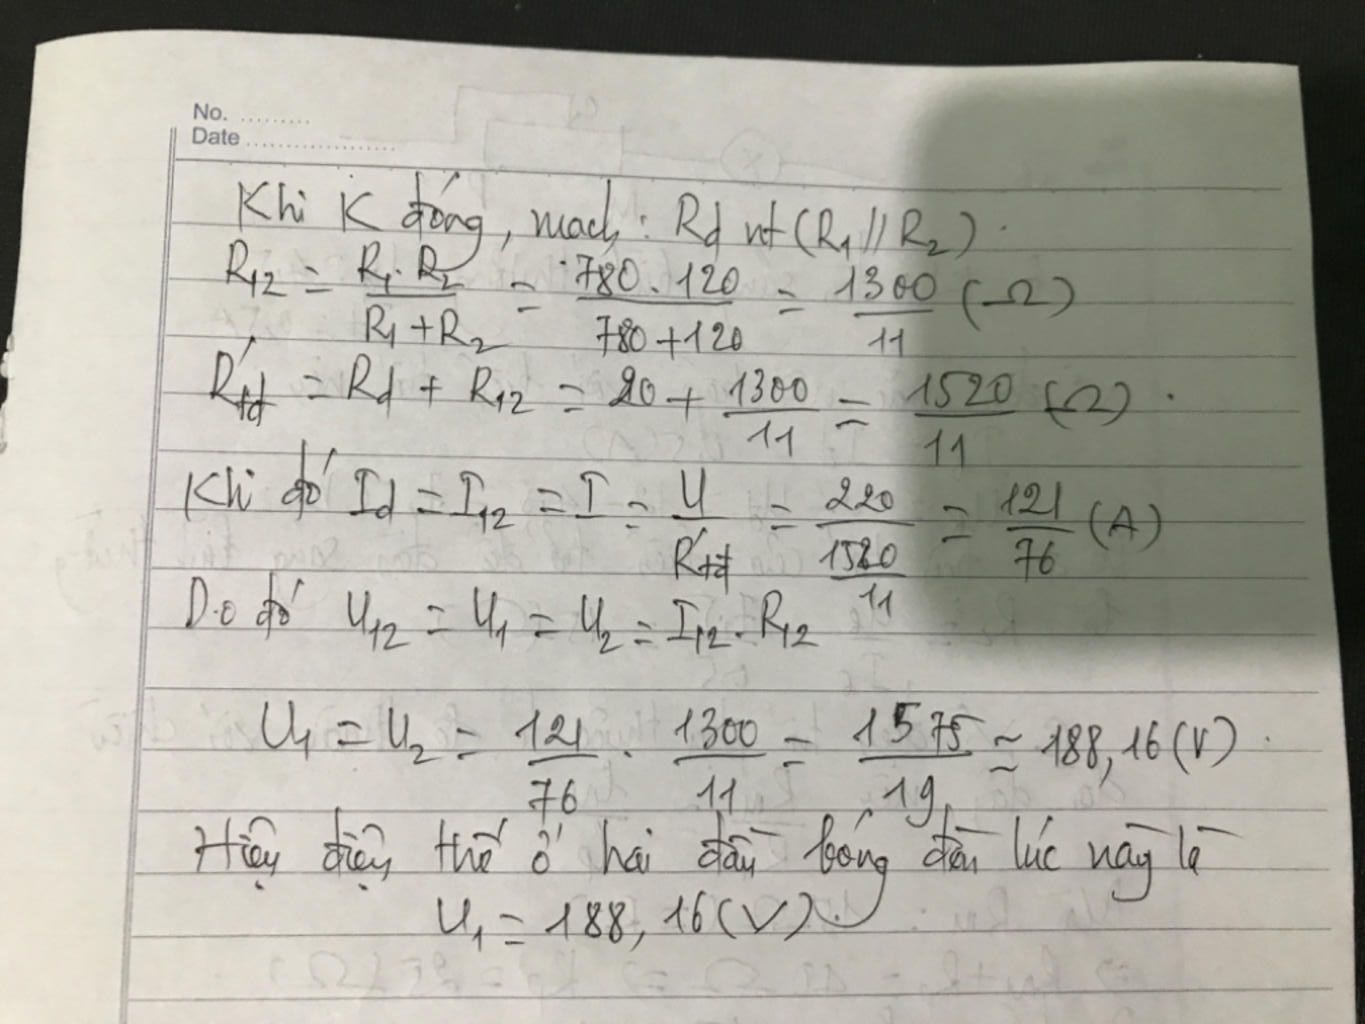 No. .........
Date ...................
Khi K đóng, mạch: Rd nt (R1 // R2).
R12 = R1.R2 / R1 + R2 = 780.120 / 780+120 = 1300 / 11 (Ω)
Rtđ = Rd + R12 = 20 + 1300 / 11 = 1520 / 11 (Ω).
Khi đó Id = I12 = I = U / Rtđ = 220 / 1520 / 11 = 121 / 76 (A)
Do đó U12 = U1 = U2 = I12.R12
U1 = U2 = 121 / 76 . 1300 / 11 = 1575 / 19 ≈ 188,16 (V).
Hiệu điện thế ở hai đầu bóng đèn lúc này là
U1 = 188,16 (V).